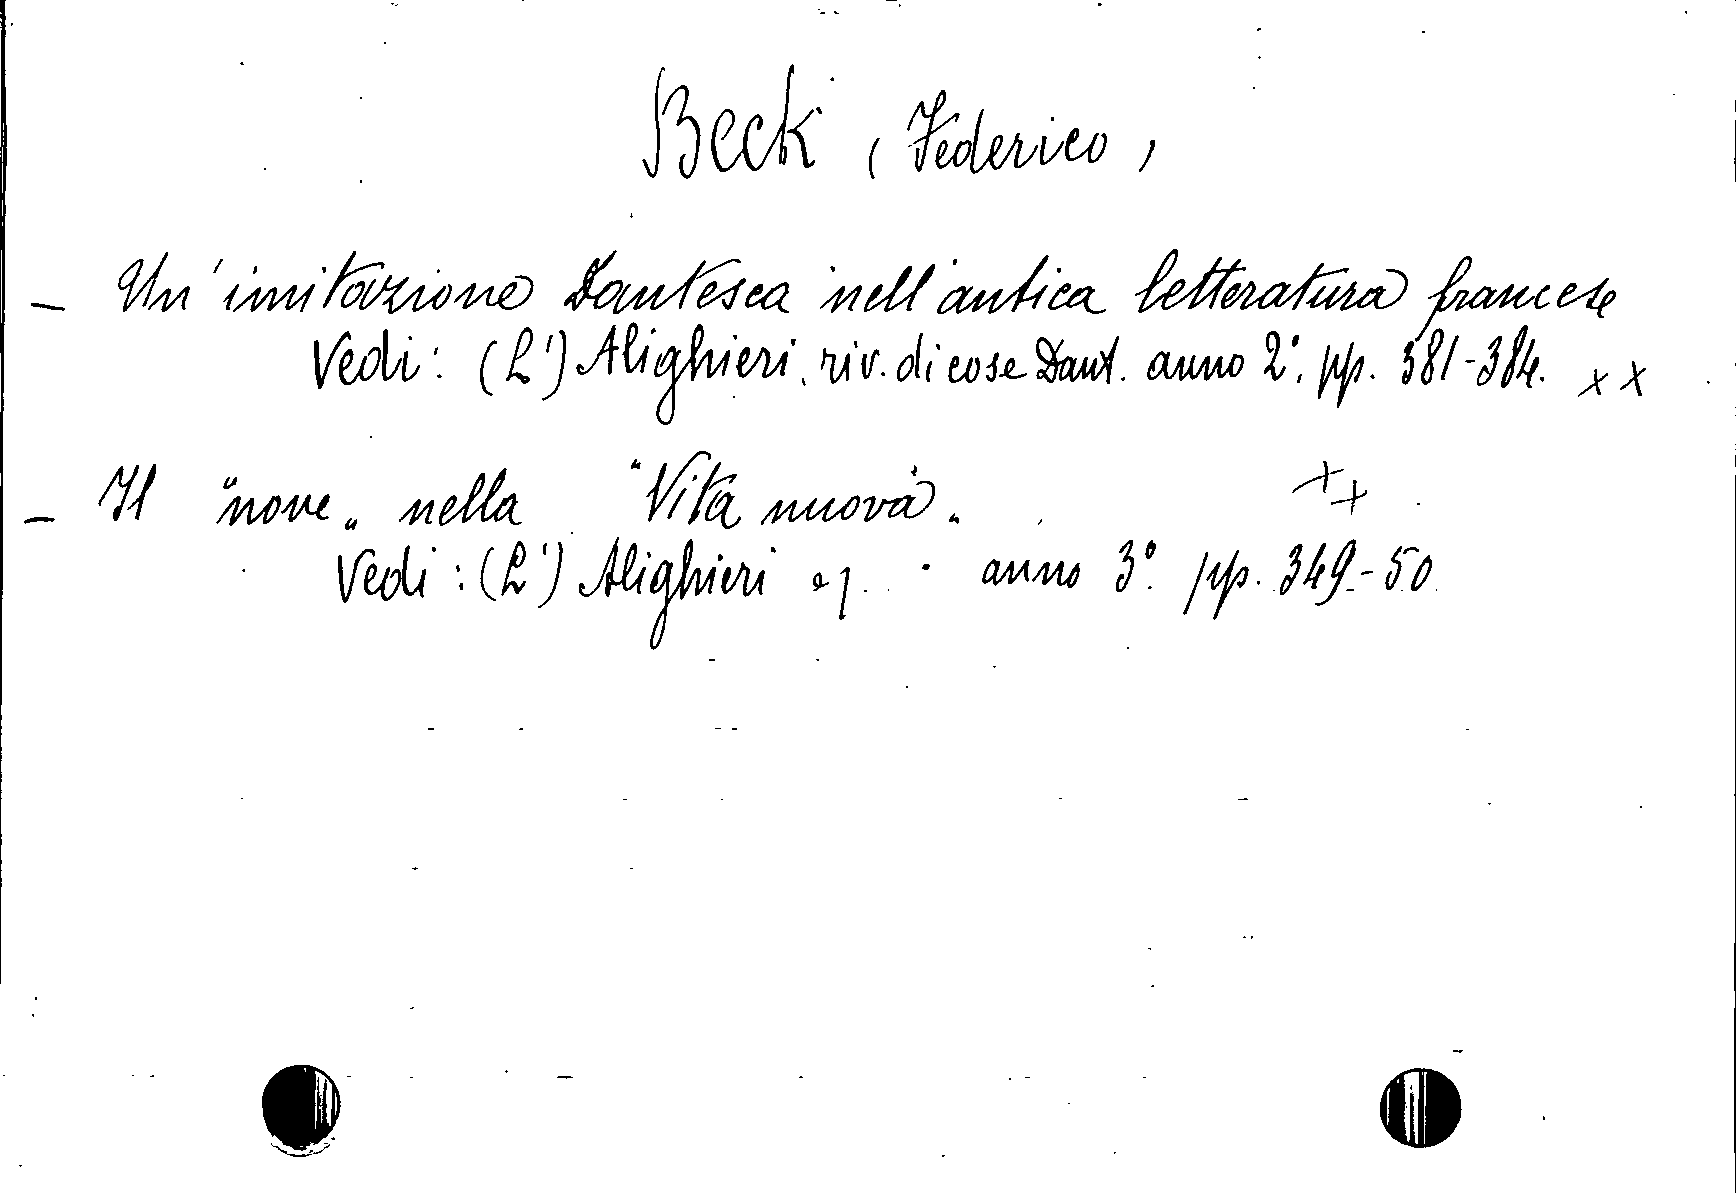 Beck (Federico)
– Un'imitazione Dantesca nell'antica letteratura francese
Vedi: (L') Alighieri, riv. di cose Dant. anno 2º. pp. 381-384. x x
– Il "nove„ nella "Vita nuova„. x x
Vedi: (L') Alighieri anno 3º. pp. 349-50